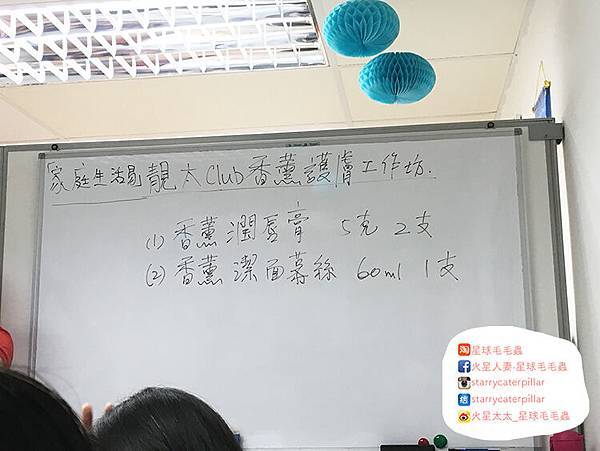 家庭生活易靚太Club香薰護膚工作坊.
(1) 香薰潤唇膏 5克 2支
(2) 香薰潔面慕絲 60ml 1支
淘 星球毛毛蟲
f 火星人妻-星球毛毛蟲
starrycaterpillar
痞 starrycaterpillar
火星太太_星球毛毛蟲